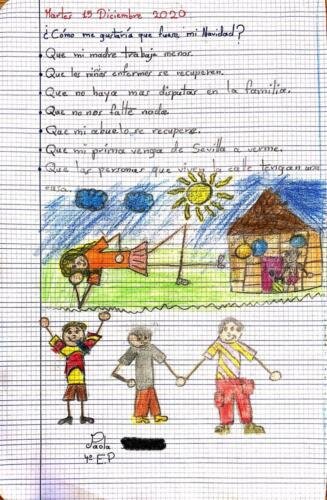 Martes 15 Diciembre 2020
¿Cómo me gustaría que fuera mi Navidad?
Que mi madre trabaje menos.
Que los niños enfermos se recuperen.
Que no haya mas disputas en la familia.
Que no nos falte nada.
Que mi abuelo se recupere.
Que mi prima venga de Sevilla a verme.
Que las personas que viven la calle tengan una
casa.
Paola
4º E.P